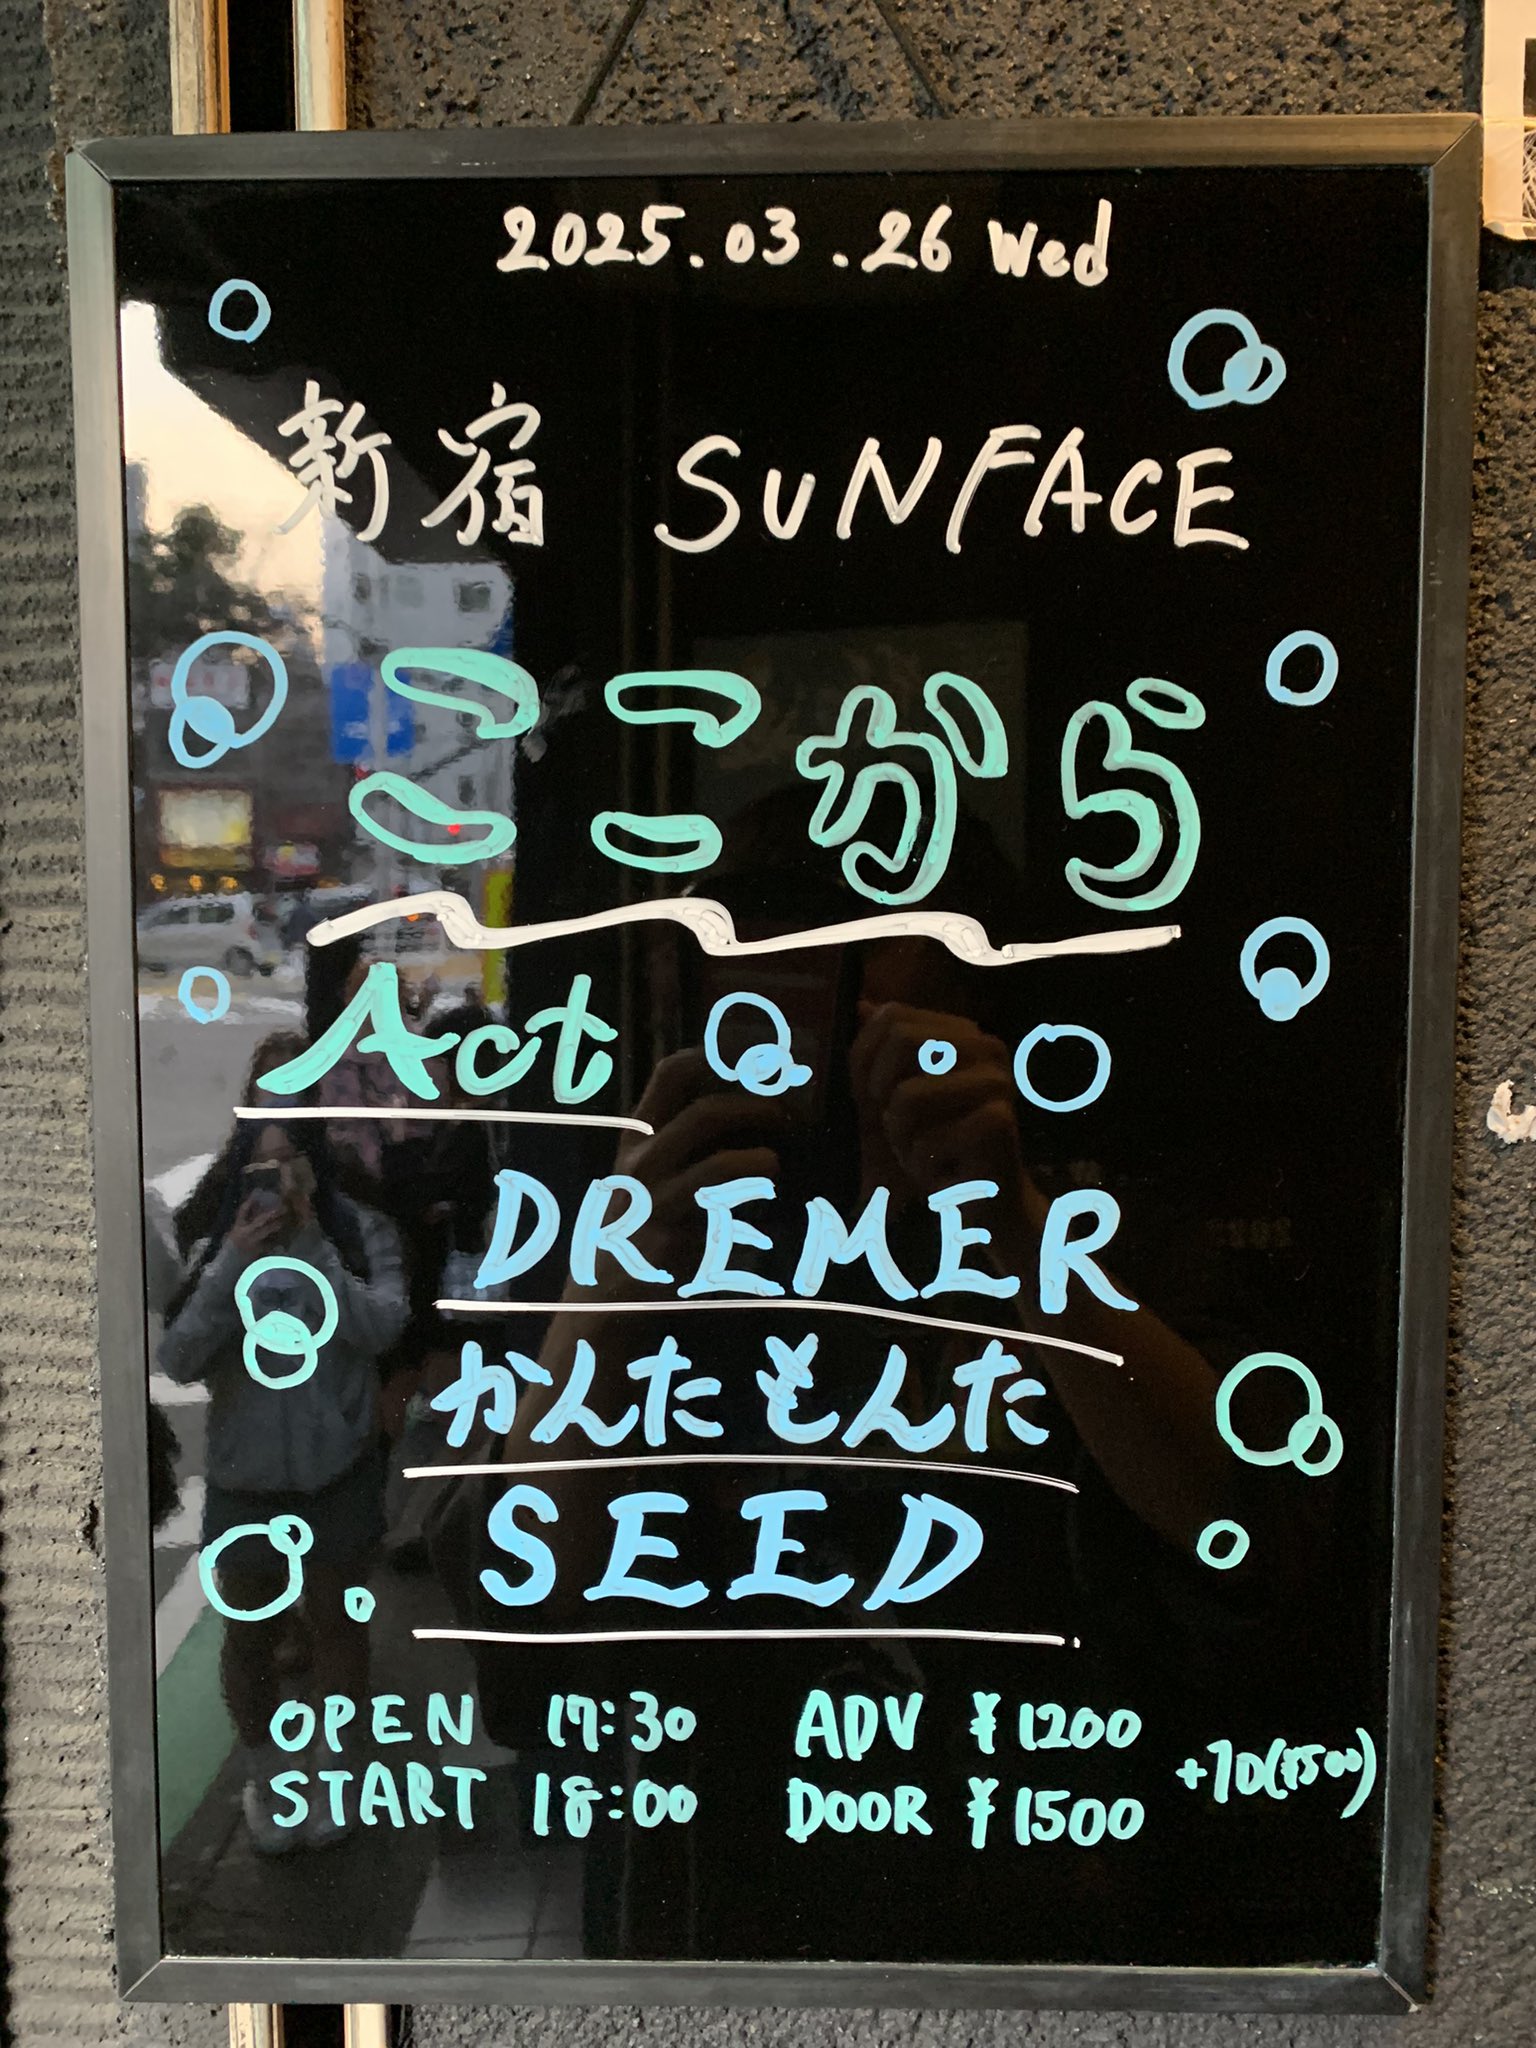 2025.03.26 Wed
新宿 SUNFACE
ここから
Act
DREMER
かんたもんた
SEED
OPEN 17:30 ADV ¥1200
START 18:00 DOOR ¥1500
+1D(¥500)